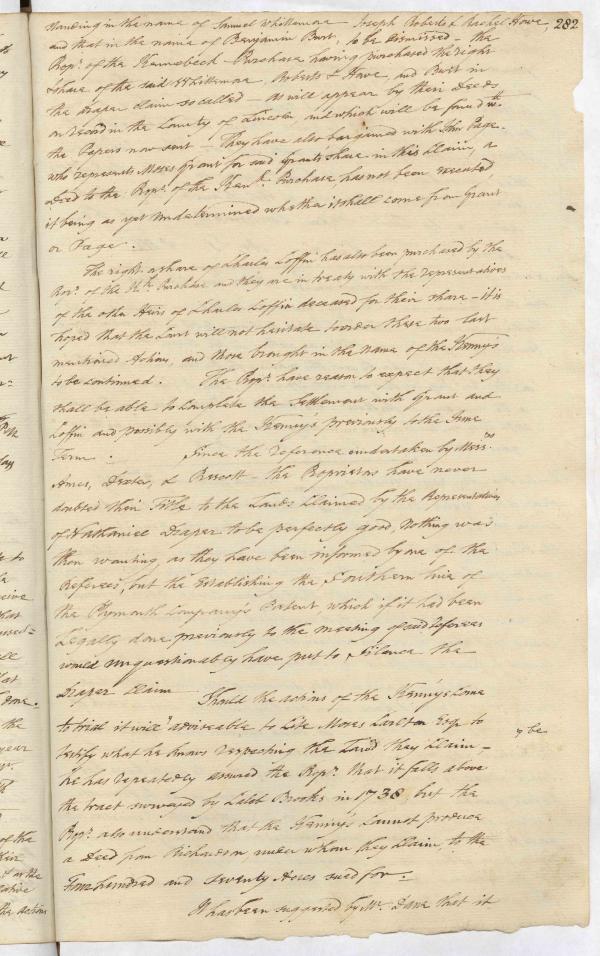 standing in the name of Samuel Whittemore Joseph Roberts & Rachel Howe, 282
and that in the name of Benjamin Burt, to be dismissed - the
Propr. of the Kennebeck - Purchase having purchased the right
& share of the said Whittemore, Roberts & Howe, and Burt in
the draper Claim so called - as will appear by their Deeds,
on record in the County of Lincoln, and which will be found in
the Papers now sent - They have also bargained with John Page.
who represents Moses Grant for said Grants Share in this Claim, a
deed to the Propr. of the Kenn. Purchase has not been executed,
it being as yet undetermined whether it shall come from Grant
or Page.
The right & share of Charles Coffin has also been purchased by the
Propr. of the Kk. Purchase and they are in treaty with the representatives
of the other Heirs of Charles Coffin deceased for their share - it is
hoped that the Court will not hesitate to order these two last
mentioned Actions, and those brought in the name of the Kennys
to be continued. The Propr. have reason to expect that they
shall be able to Complete the Settlement with Grant and
Coffin and possibly with the Kennys previously to the June
Term. Since the reference undertaken by Messrs.
Ames, Dexter, & Prescott - the Proprietors have never
doubted their Title to the Lands Claimed by the Representatives
of Nathaniel Draper to be perfectly good, nothing was
then wanting, as they have been informed by one of the
Referees, but the Establishing the Southern line of
the Plymouth Company's Patent which if it had been
Legally done previously to the meeting of said Referees
would unquestionably have put to Silence the
Draper Claim Should the actions of the Kennys Come
to trial it will adviseable to Cite Moses Carlton Esqr. to
testify what he knows respecting the Land they Claim -
he has repeatedly assured the Propr. that it falls above
the tract surveyed by Caleb Brooks in 1738 but the
Propr. also understand that the Kennys Cannot produce
a deed from Richardson, under whom they Claim, to the
Four hundred and Seventy Acres sued for -
It has been suggested by Mr. Dane that it
be